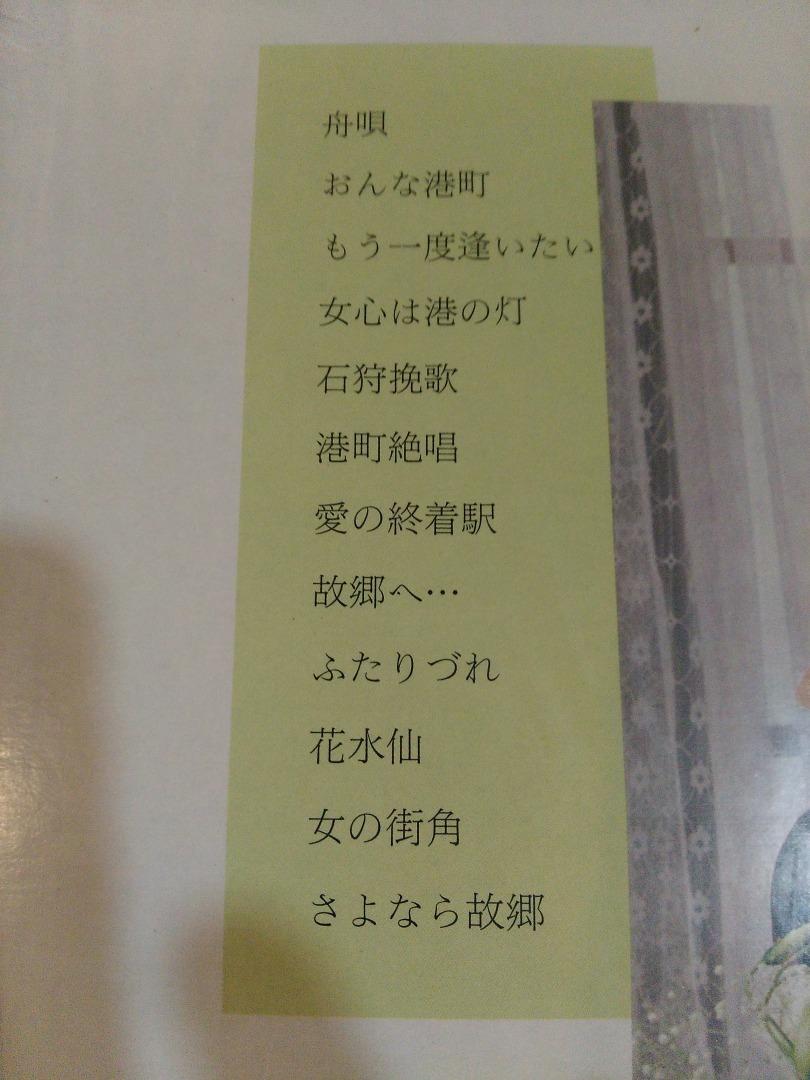 舟唄
おんな港町
もう一度逢いたい
女心は港の灯
石狩挽歌
港町絶唱
愛の終着駅
故郷へ…
ふたりづれ
花水仙
女の街角
さよなら故郷